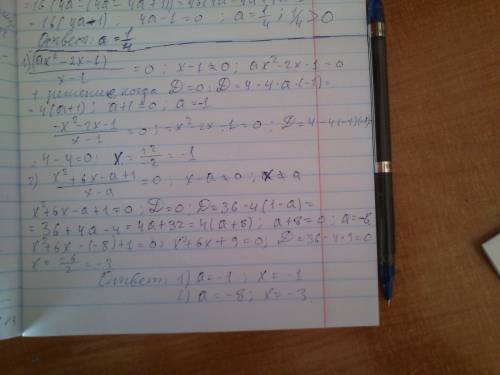 =16(4a-1); 4a-1=0; a=1/4; 1/4>0
Ответ: a=1/4
1) (ax²-2x-1)/(x-1)=0; x-1≠0; ax²-2x-1=0
1 решение когда D=0; D=4-4·a·(-1)=
=4(a+1); a+1=0; a=-1
(-x²-2x-1)/(x-1)=0; -x²-2x-1=0; D=4-4(-1)(-1)=
=4-4=0; x= =-1
2) (x²+6x-a+1)/(x-a)=0; x-a≠0; x≠a
x²+6x-a+1=0; D=0; D=36-4(1-a)=
=36+4a-4=4a+32=4(a+8); a+8=0; a=-8
x²+6x-(-8)+1=0; x²+6x+9=0; D=36-4·9=0
x=-6/2=-3
Ответ: 1) a=-1; x=-1
2) a=-8; x=-3.